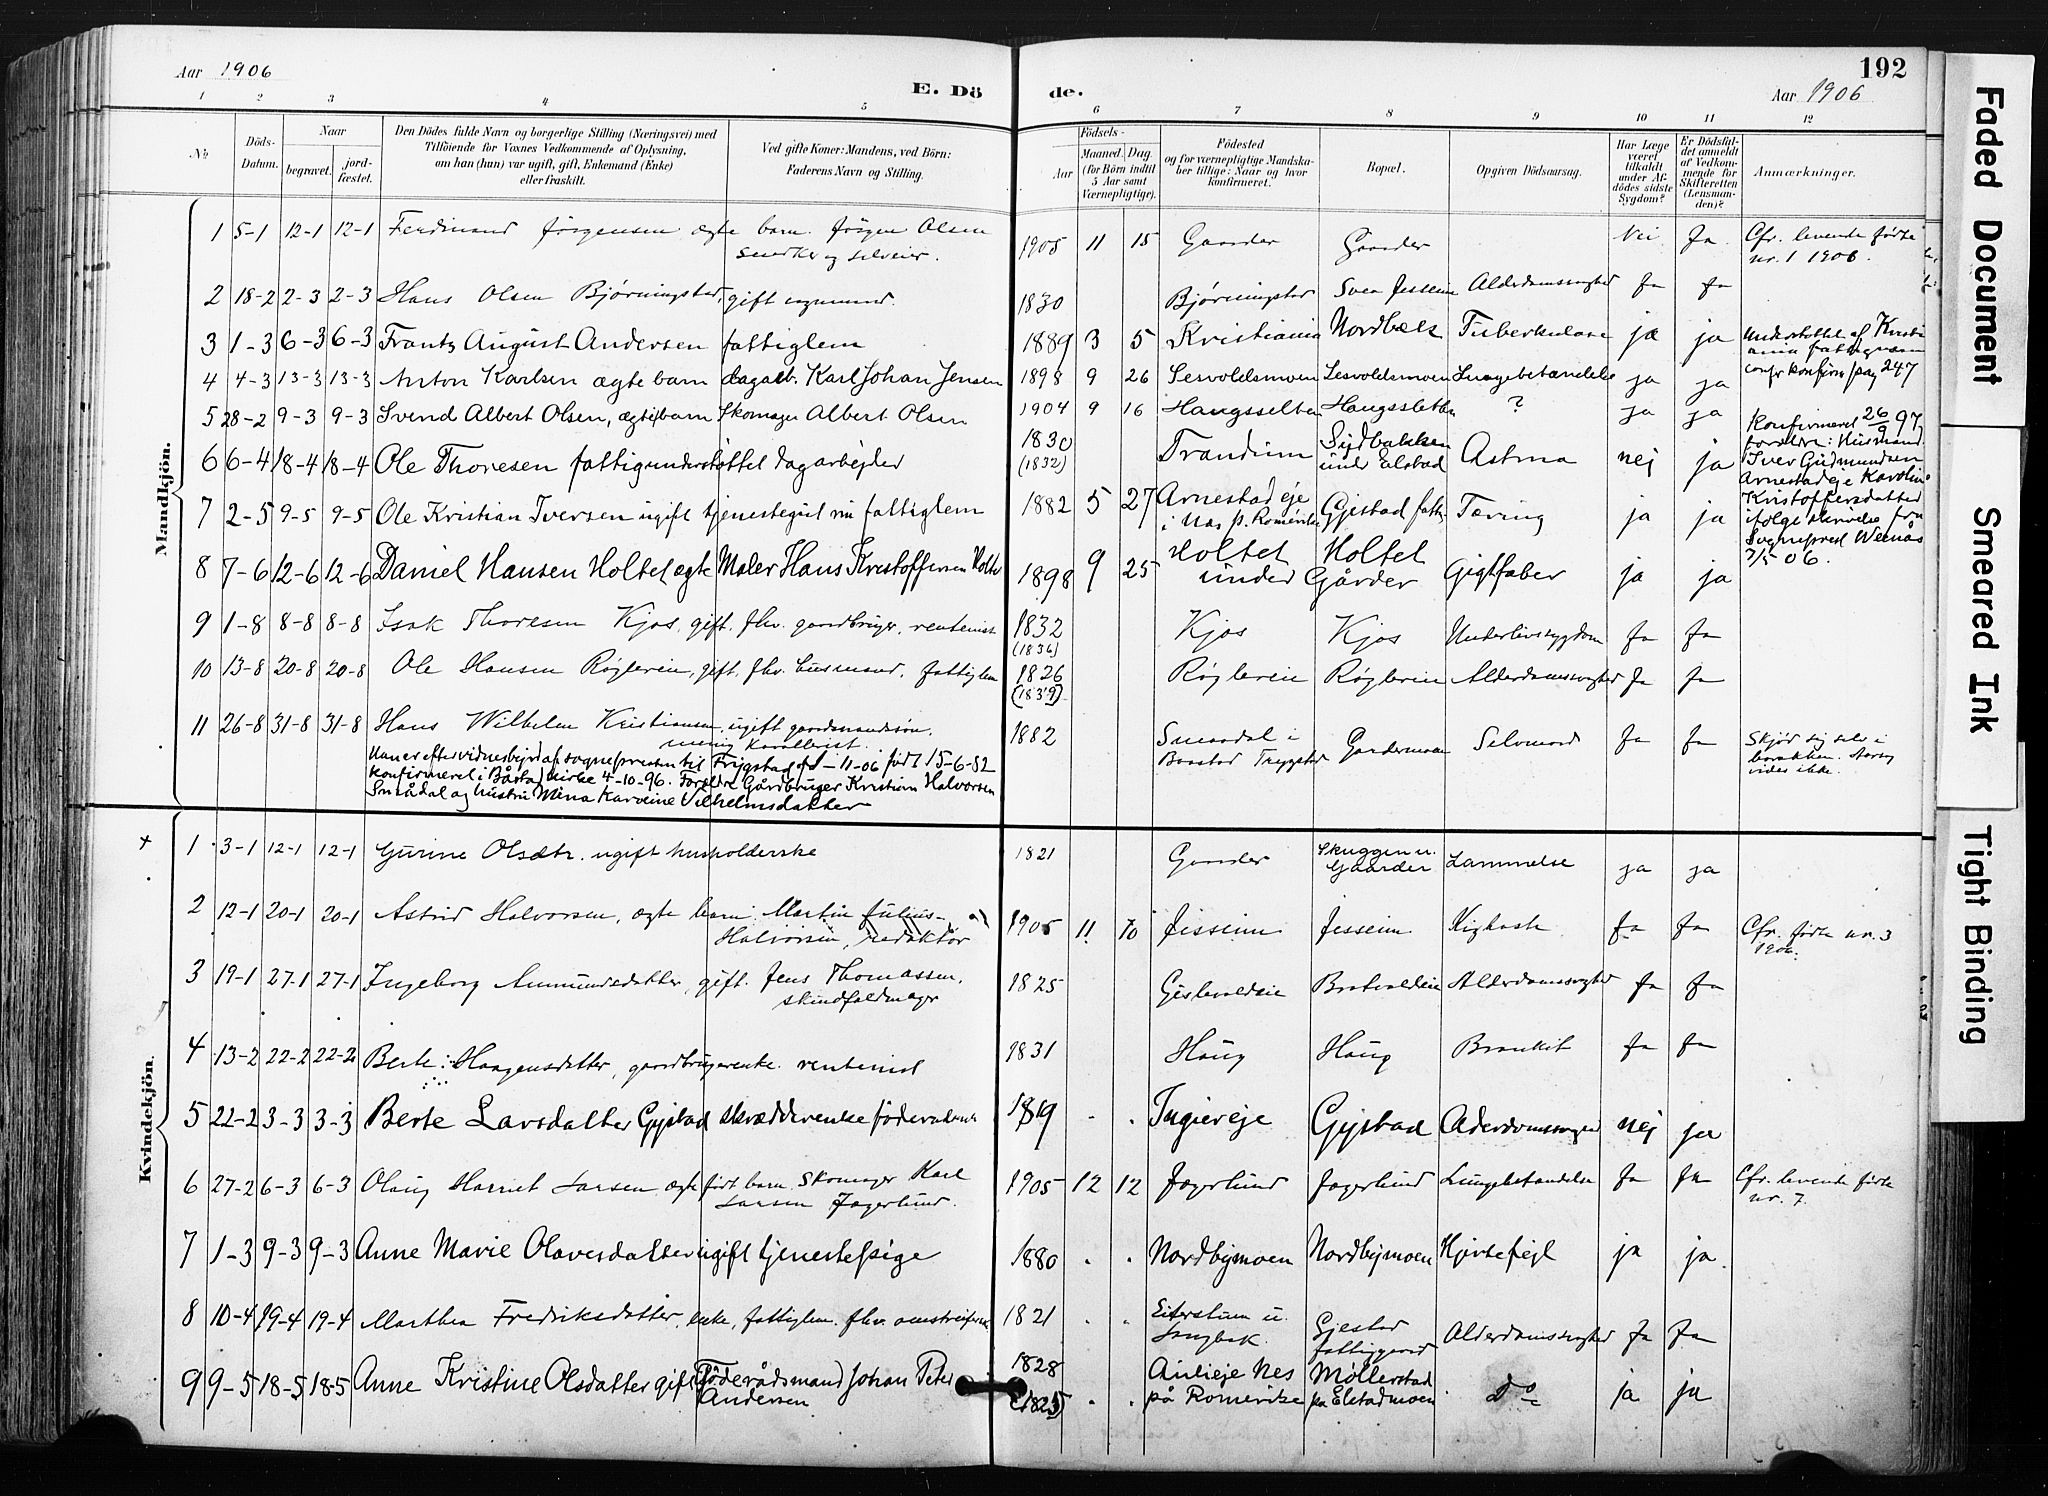 Aar 1906
E. Dö de.
192
Aar 1906
1 2 3 4 5 6 7 8 9 10 11 12
No
Döds-Datum.
Naar
begravet.
jord-fæstet.
Den Dödes fulde Navn og borgerlige Stilling (Næringsvei) med
Tilföiende for Voxnes Vedkommende af Oplysning,
om han (hun) var ugift, gift, Enkemand (Enke)
eller fraskilt.
Ved gifte Koner: Mandens, ved Börn:
Faderens Navn og Stilling.
Födsels-
Aar
Maaned. Dag.
(for Börn indtil
5 Aar samt
Værnepligtige).
Födested
og for værnepligtige Mandska-
ber tillige: Naar og hvor
konfirmeret.
Bopæl.
Opgiven Dödsaarsag.
Har Læge
været
tilkaldt
under Af-
dödes sidste
Sygdom?
Er Dödsfal-
det anmeldt
af Vedkom-
mende for
Skifteretten
(Lensman-
den)?
Anmærkninger.
Mandkjön.
1 5-1 12-1 12-1 Ferdinand Jørgensen ægte barn. Jörgen Olsen 1905 11 15 Gaarder Gaarder Nei Ja Cfr. levende fødte
snedker og selveier. nr. 1 1906.
2 18-2 2-3 2-3 Hans Olsen Bjørningstad, gift 1830 Bjørningstad Jesseim Alderdomssvaghed Ja Ja
3 1-3 6-3 6-3 Frantz August Andersen fattiglem 1889 3 5 Kristiania Nordbæk Tuberkulose ja ja Understöttet af Kristi
ania fattigvæsen
confr konfirm pag 247
4 4-3 13-3 13-3 Anton Karlsen ægte barn dagarb. Karl Johan Jensen 1898 9 26 Sesvoldsmoen Sesvoldsmoen Lungebetændelse ja ja
5 28-2 9-3 9-3 Svend Albert Olsen, ægte barn Skomager Albert Olsen 1904 9 16 Haugssletten Haugssletten ? ja ja
6 6-4 18-4 18-4 Ole Thoresen fattigunderstøttet dagarbejder 1830 (1832) Trandum Sydbakken
under Elstad Astma nej ja
7 2-5 9-5 9-5 Ole Kristian Iversen ugift tjenestegut nu fattiglem 1882 5 27 Arnestadeje
i Nes p. Romerike Gjestad Tæring ja ja
Konfirmeret 26/9 97,
foreldre: Husmand
Iver Gudmundsen
Arnestadeje Karoline
Kristoffersdatter
ifølge skrivelse fra
Sogneprest Wernås
7/5 06.
8 7-6 12-6 12-6 Daniel Hansen Holtet ægte Maler Hans Kristoffersen Holtet 1898 9 25 Holtet Holtet
under Gårder Gigtfeber ja ja
9 1-8 8-8 8-8 Isak Thoresen Kjos, gift, fhv. gaardbruger, rentenist 1832 (1836) Kjos Kjos Underlivssygdom Ja Ja
10 13-8 20-8 20-8 Ole Hansen Røglereie, gift, fhv. husmand, fattiglem 1826 (1839) Røglereie Røglereie Alderdomssvaghed Ja Ja
11 26-8 31-8 31-8 Hans Wilhelm Kristiansen, ugift gaardmandssøn, 1882 Smaadal i
Baastad Trygstad Gardermoen Selvmord Ja Ja Skjød sig selv i
barakken. Aarsag
vides ikke.
menig kavallerist.
Han er efter vidnesbyrd af sognepresten til Trygstad -11-06 født 15-6-82
konfirmeret i Båstad kirke 4-10-96. Foreldre Gårdbruger Kristian Halvorsen
Smådal og hustru Mina Karoline Vilhelmsdatter
Kvindekjön.
+ 1 3-1 12-1 12-1 Gurine Olsdtr. ugift husholderske 1821 Gaarder Skuggen u.
Gaarder Lammelse ja ja
2 12-1 20-1 20-1 Astrid Halvorsen, ægte barn. Martin Julius
Halvorsen, redaktør 1905 11 10 Jesseim Jesseim Kighoste Ja Ja Cfr. fødte nr. 3
1906.
3 19-1 27-1 27-1 Ingeborg Amundsdatter, gift. Jens Thomassen,
skindfeldmager 1825 Gislevoldeie Alderdomssvaghed Ja Ja
4 13-2 22-2 22-2 Berte Haagensdatter, gaardbrugerenke. rentenist 1831 Haug Haug Bronkit Ja Ja
5 22-2 3-3 3-3 Berte Larsdatter Gjestad skrædderenke föderadsenke 1819 Ingiereje Gjestad Alderdomssvaghed nej ja
6 27-2 6-3 6-3 Olaug Harriet Larsen ægte født barn. Skomager Karl
Larsen Jagerlund. 1905 12 12 Jagerlund Jagerlund Lungebetændelse Ja Ja Cfr. levende fødte
nr. 7.
7 1-3 9-3 9-3 Anne Marie Olavesdatter ugift tjenestepige 1880 Nordbymoen Nordbymoen Hjertefejl ja ja
8 10-4 19-4 19-4 Marthea Fredriksdatter, enke, fattiglem. fhv. omstreiferske 1821 Eiterstum u.
Gjestad
fattiggaard Alderdomssvaghed Ja Ja
9 9-5 18-5 18-5 Anne Kristine Olsdatter gift Föderådsmand Johan Peter
Andersen 1828 (1825) Aulieje Nes
på Romerike Møllerstad
på Elstadmoen Do ja ja
Faded Document
Smeared Ink
Tight Binding